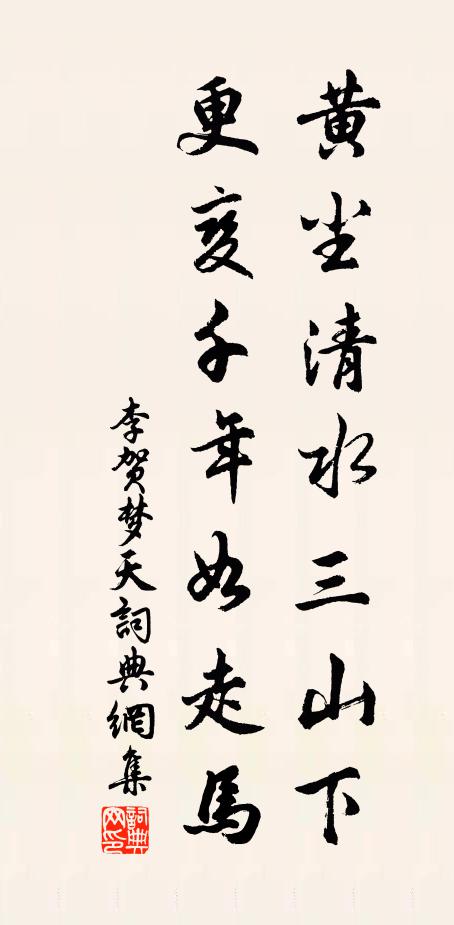 黄尘清水三山下
更变千年如走馬
李贺梦天詞典網集
詞典网印